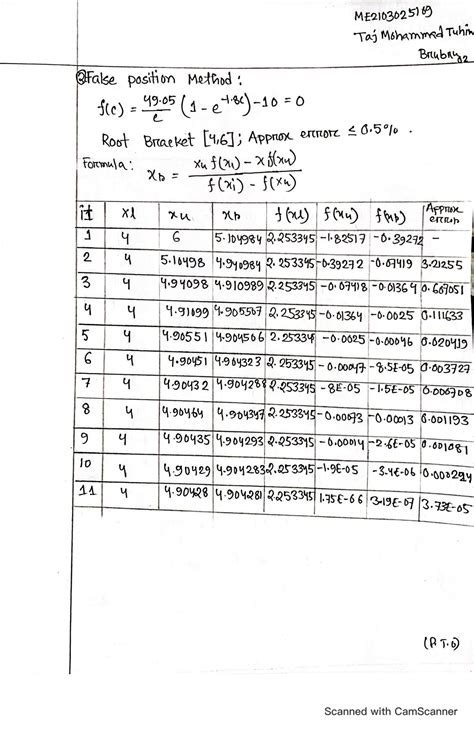 ME2103025109
Taj Mohammed Tuhin
② False position Method:
f(c) = 49.05/c (1 - e^-1.8c) - 10 = 0
Root Bracket [4,6]; Approx errore ≤ 0.5%.
Formula: x_b = (x_u f(x_l) - x f(x_u)) / (f(x_l) - f(x_u))
it xl x_u x_b f(xl) f(x_u) f(x_b) Approx error
1 4 6 5.104984 2.253345 -1.82517 -0.39272 -
2 4 5.10498 4.940984 2.253345 -0.39272 -0.07419 3.21255
3 4 4.94098 4.910989 2.253345 -0.07418 -0.01364 0.667051
4 4 4.91099 4.905507 2.253345 -0.01364 -0.0025 0.111633
5 4 4.90551 4.904506 2.25334 -0.0025 -0.00046 0.020419
6 4 4.90451 4.904323 2.253345 -0.00047 -8.5E-05 0.003727
7 4 4.90432 4.904288 2.253345 -8E-05 -1.5E-05 0.000708
8 4 4.90464 4.904347 2.253345 -0.00073 -0.00013 0.001193
9 4 4.90435 4.904293 2.253345 -0.00014 -2.6E-05 0.001081
10 4 4.90429 4.904283 2.253345 -1.9E-05 -3.4E-06 0.000294
11 4 4.90428 4.904281 2.253345 1.75E-06 3.19E-07 3.73E-05
(P.T.O)
Scanned with CamScanner